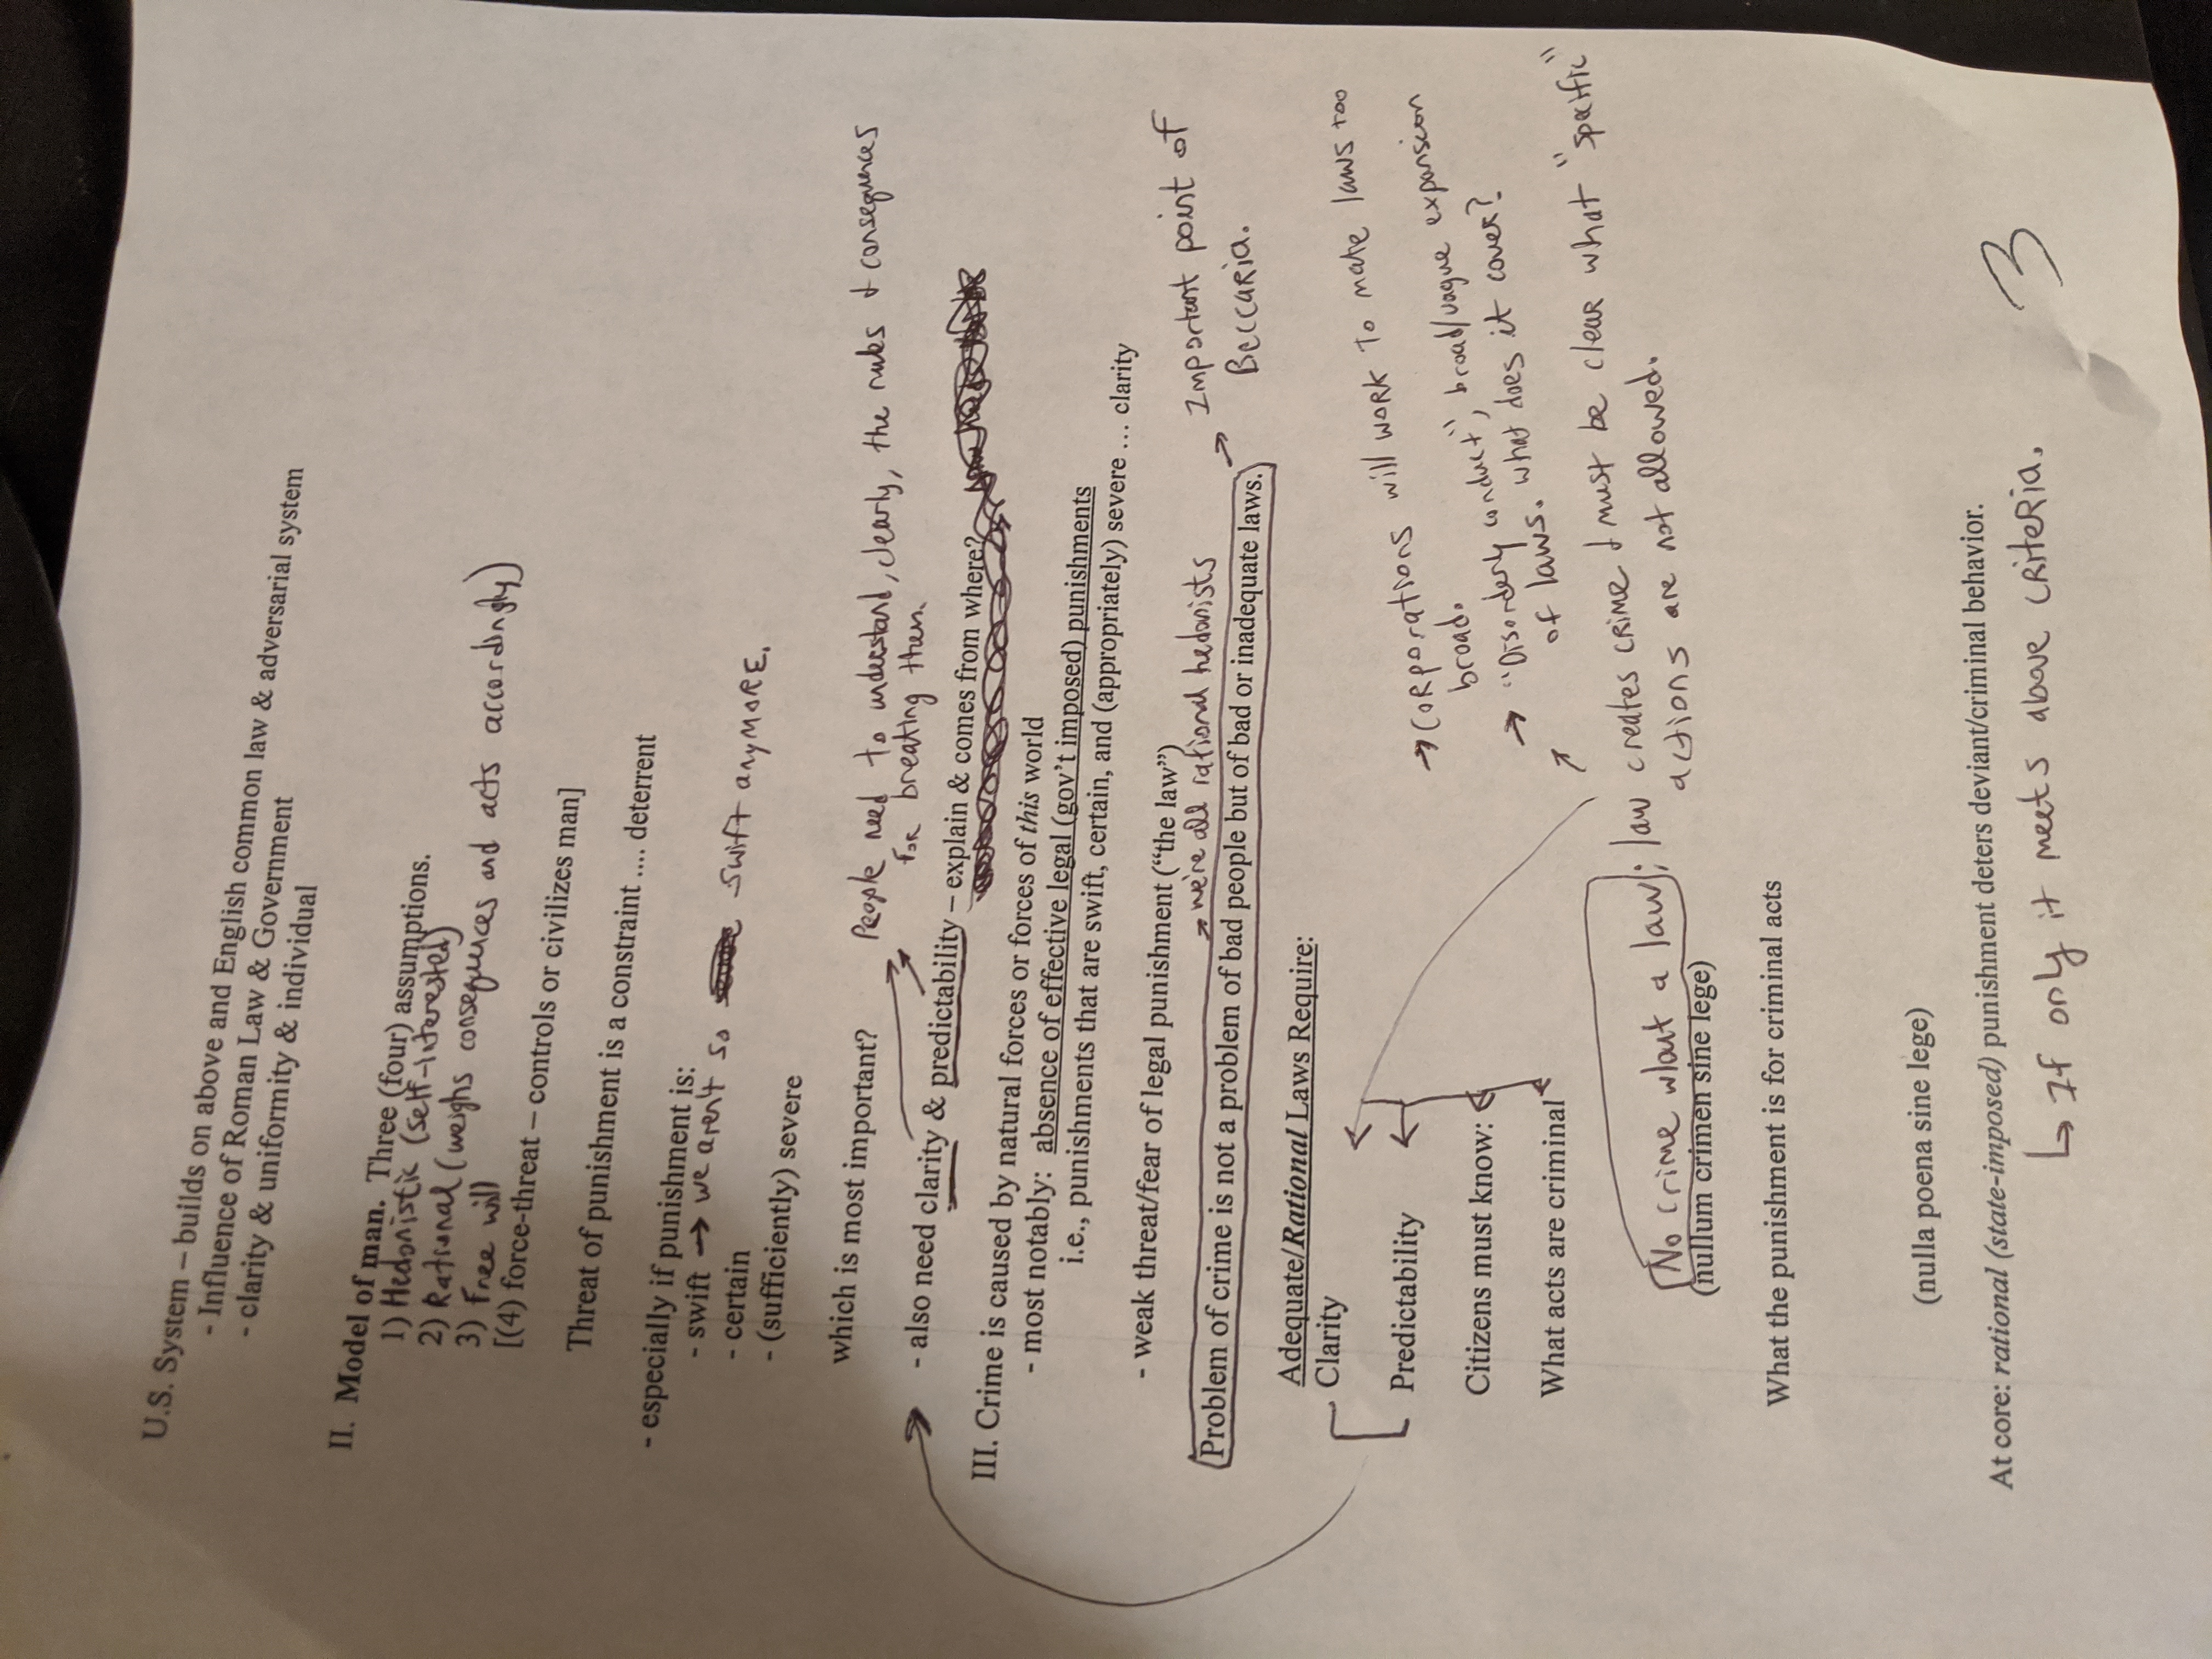 U.S. System – builds on above and English common law & adversarial system
- Influence of Roman Law & Government
- clarity & uniformity & individual
II. Model of man. Three (four) assumptions.
1) Hedonistic (self-interested)
2) Rational (weighs consequences and acts accordingly)
3) Free will
[(4) force-threat – controls or civilizes man]
Threat of punishment is a constraint .... deterrent
- especially if punishment is:
- swift → we aren't so swift anymore.
- certain
- (sufficiently) severe
which is most important?
People need to understand, clearly, the rules & consequences
for breaking them.
- also need clarity & predictability – explain & comes from where?
III. Crime is caused by natural forces or forces of this world
- most notably: absence of effective legal (gov't imposed) punishments
i.e., punishments that are swift, certain, and (appropriately) severe … clarity
- weak threat/fear of legal punishment (“the law”)
→ we're all rational hedonists
Problem of crime is not a problem of bad people but of bad or inadequate laws.
→ Important point of
Beccaria.
Adequate/Rational Laws Require:
Clarity
Predictability
→ Corporations will work to make laws too
broad.
Citizens must know:
→ "Disorderly conduct", broad/vague expansion
of laws. what does it cover?
What acts are criminal
No crime w/out a law; law creates crime & must be clear what "specific"
actions are not allowed.
(nullum crimen sine lege)
What the punishment is for criminal acts
(nulla poena sine lege)
At core: rational (state-imposed) punishment deters deviant/criminal behavior.
↳ If only it meets above criteria.
3